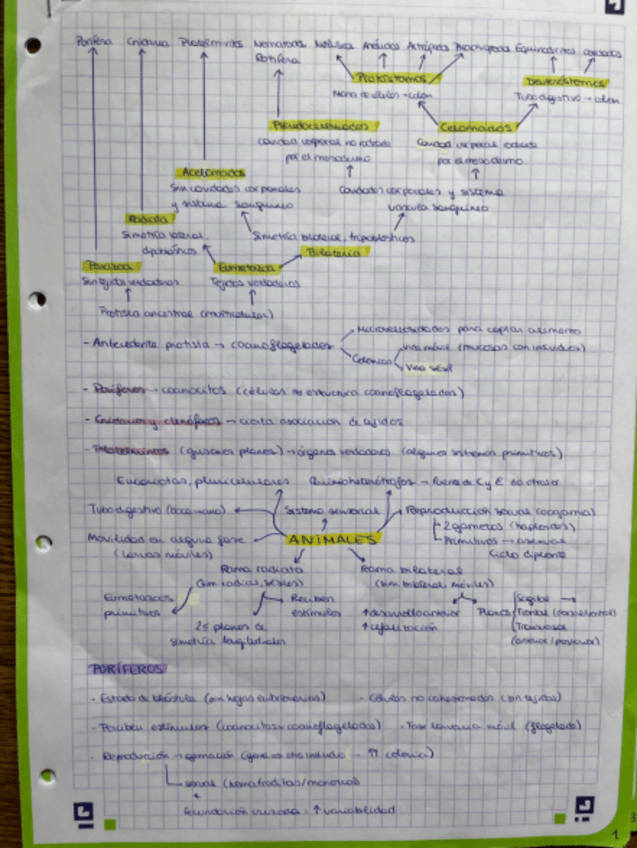 Porifera Cnidaria Platelmintos Nematoda Molusca Anélidos Artrópodos Equinodermos Cordados
Rotífera
Protóstomos Deuteróstomos
Tubo digestivo → colon
Pseudocelomados Celomados
Cavidad corporal no rodeada Cavidad corporal rodeada
por el mesodermo por el mesodermo
Acelomados
Sin cavidades corporales Cavidades corporales y sistema
y sistema sanguíneo vascular sanguíneo
Radiata
Simetría bilateral, tripoblásticos
diploblásticos
Bilateria
Parazoa Eumetazoa
Sin tejidos verdaderos Tejidos verdaderos
Protista ancestral (multicelular)
- Antecedente protista → coanoflagelados Microvellosidades para captar alimento
Colonias
Vida sésil
- Poríferos → coanocitos (células estructura coanoflagelados)
- Cnidarios y ctenóforos → cierta asociación de tejidos
- Platelmintos (gusanos planos) → órganos verdaderos (algunos sistemas primitivos)
Eucariotas, pluricelulares Quimioheterótrofos → Fuente de C y E de otros
Tubo digestivo (boca-ano) Sistema sensorial Reproducción sexual (oogamia)
2 gametos (haploides)
Movilidad en alguna fase ANIMALES Primitivos → asexual
(larvas móviles) Ciclo diplonte
Rama radiata Rama bilateral
(sim. radial, sésiles) (sim. bilateral, móviles)
Eumetazoos Reciben Sagital
primitivos estímulos ↑ cefalización Planos Frontal
2 ≤ planos de Transversal
simetría longitudinales (anterior/posterior)
PORÍFEROS
- Estado de blástula (sin hojas embrionarias) - Células no cohesionadas (sin tejidos)
- Perciben estímulos (coanocitos = coanoflagelados) - Fase larvaria móvil (flagelada)
- Reproducción → gemación (genera otro individuo → ↑↑ colonia)
sexual (hermafroditas/monoicos)
Fecundación cruzada: ↑ variabilidad
1